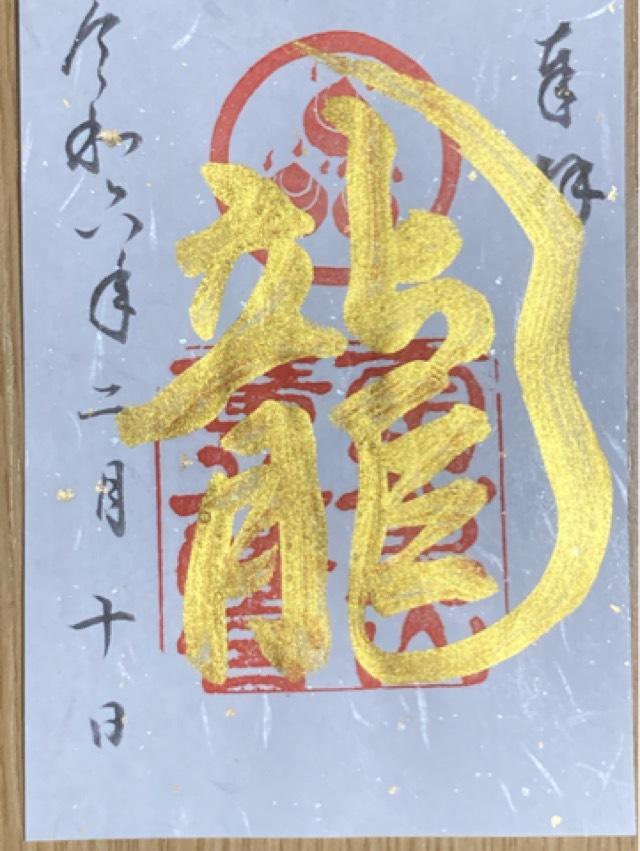 奉拝
龍
令和六年二月十日